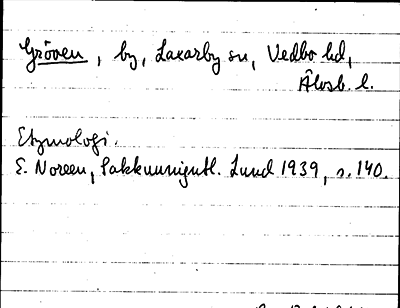 Gröven, by, Laxarby sn, Vedbo hd,
Älvsb. l.
Etymologi.
E. Noreen, Lund 1939, s. 140.